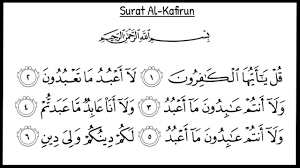 Surat Al-Kafirun
بِسْمِ اللَّهِ الرَّحْمَٰنِ الرَّحِيمِ
قُلْ يَا أَيُّهَا الْكَافِرُونَ ١ لَا أَعْبُدُ مَا تَعْبُدُونَ ٢
وَلَا أَنتُمْ عَابِدُونَ مَا أَعْبُدُ ٣ وَلَا أَنَا عَابِدٌ مَّا عَبَدتُّمْ ٤
وَلَا أَنتُمْ عَابِدُونَ مَا أَعْبُدُ ٥ لَكُمْ دِينُكُمْ وَلِيَ دِينِ ٦